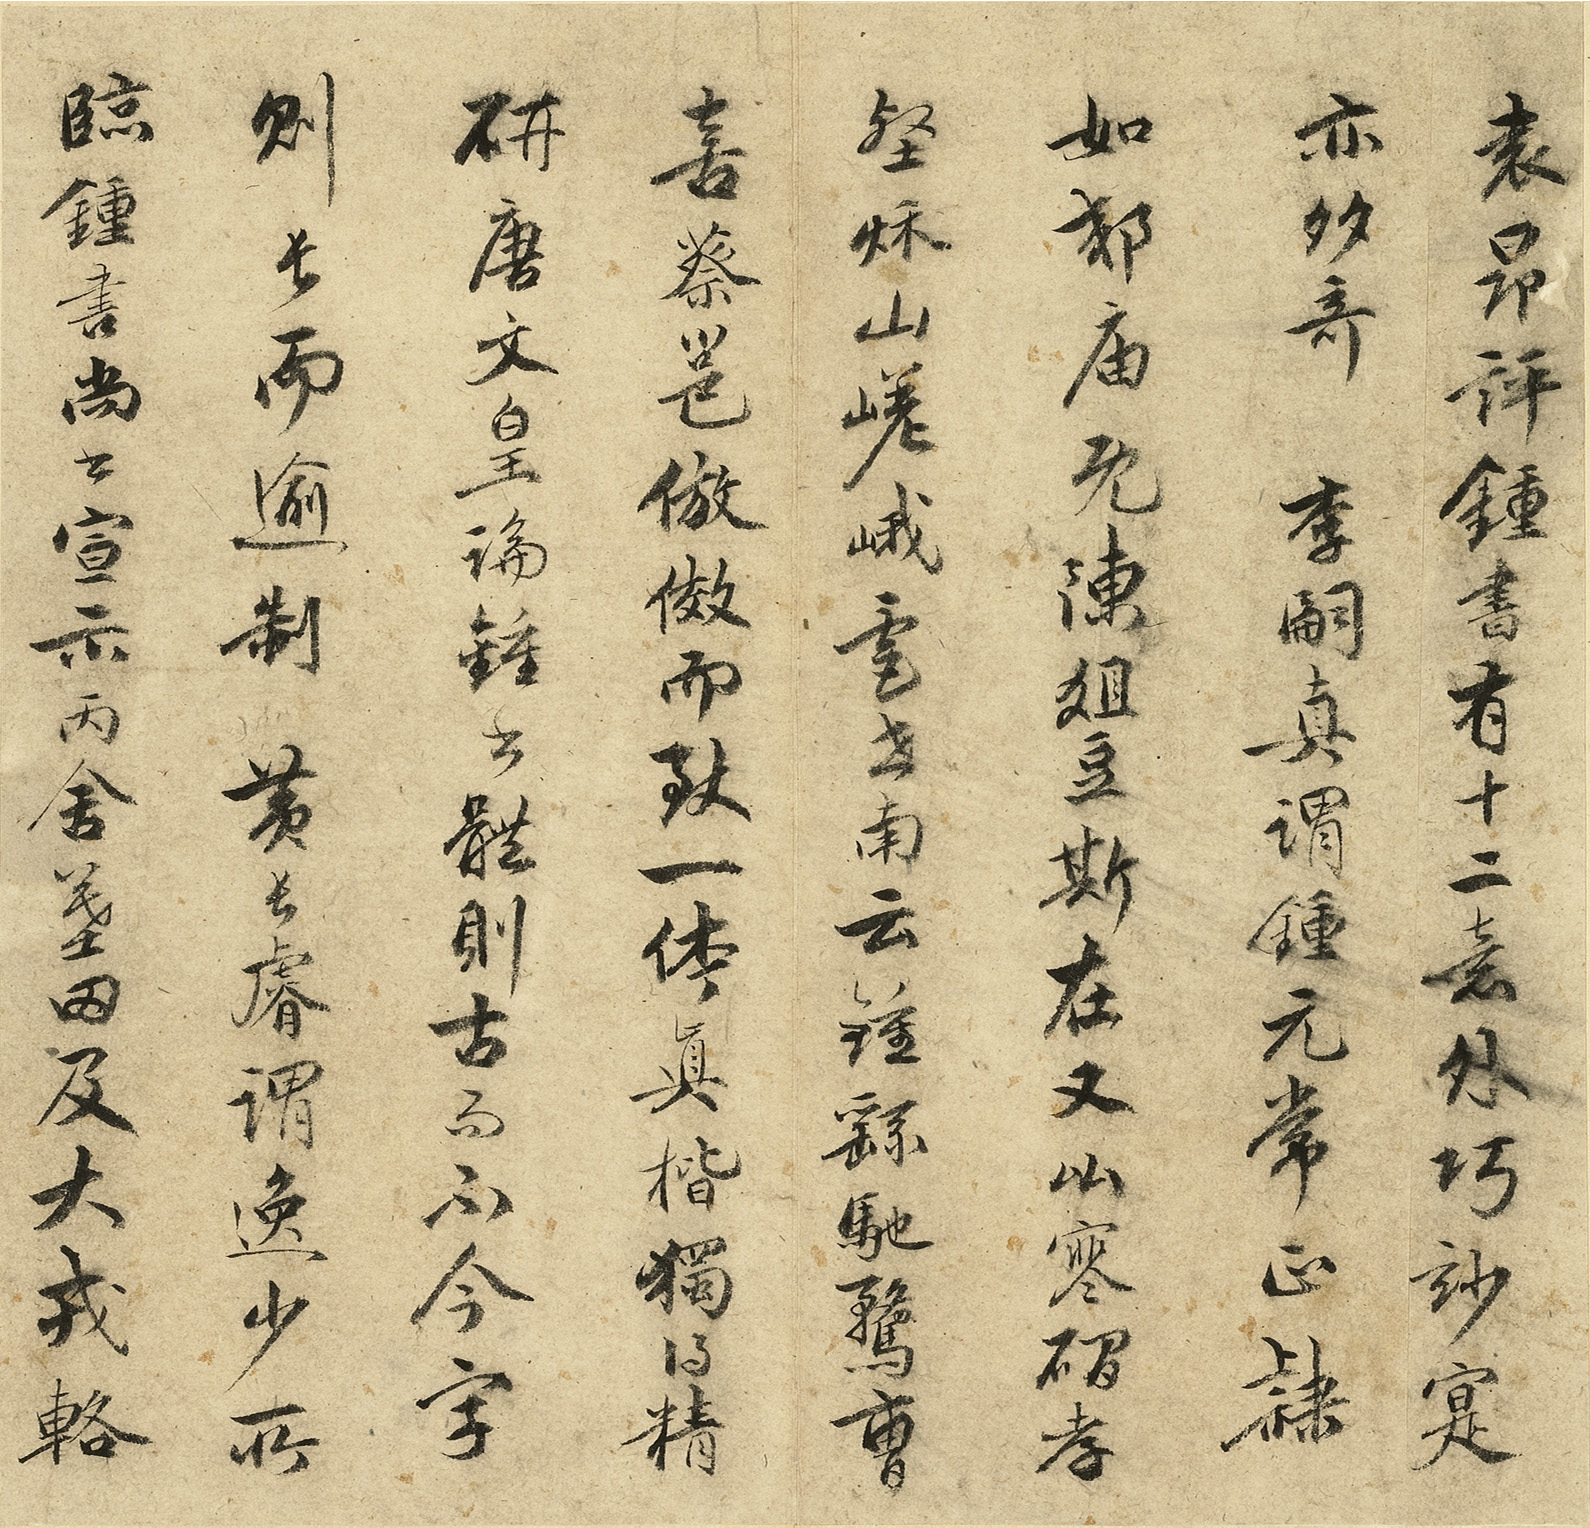 袁昂評鍾書有十二意外巧妙寔
亦多奇 李嗣真謂鍾元常正隸
如郊庙既陳俎豆斯在又比寒磵
壑秌山嵯峨 虞世南云鍾繇馳騖曹
喜蔡邕倣傚而致一体真楷獨得精
研 唐文皇論鍾書體則古而不今字
則長而逾制 黃長睿謂逸少所
臨鍾書尚書宣示丙舍墓田及大戎輅